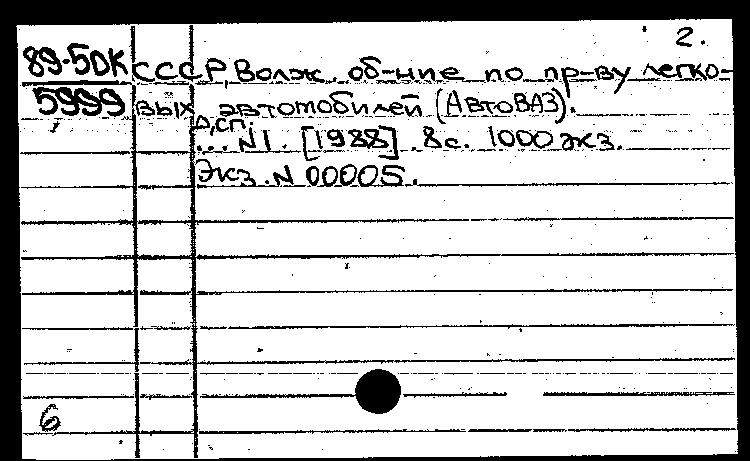 2.
89-5DK СССР, Волж. об-ние по пр-ву легко-
5999 вых автомобилей (АвтоВАЗ).
Д,сп,
... N1. [1988] 8с. 1000 экз.
Экз. N 00005.
6